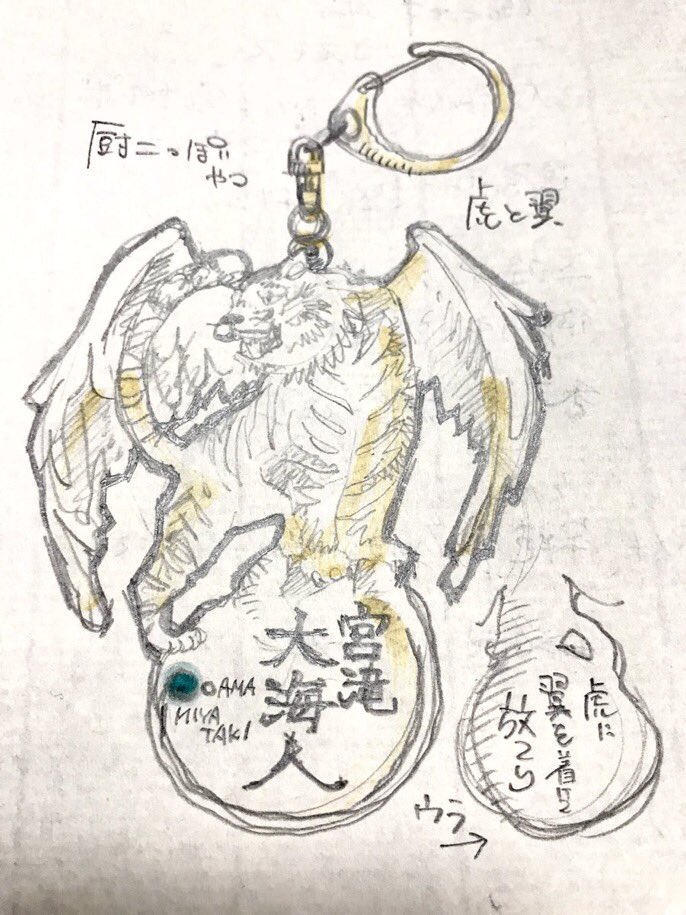 厨二っぽい
やつ
虎と翼
宮滝
大海人
OAMA
MIYA
TAKI
虎に
翼を着けて
放てり
ウラ
→